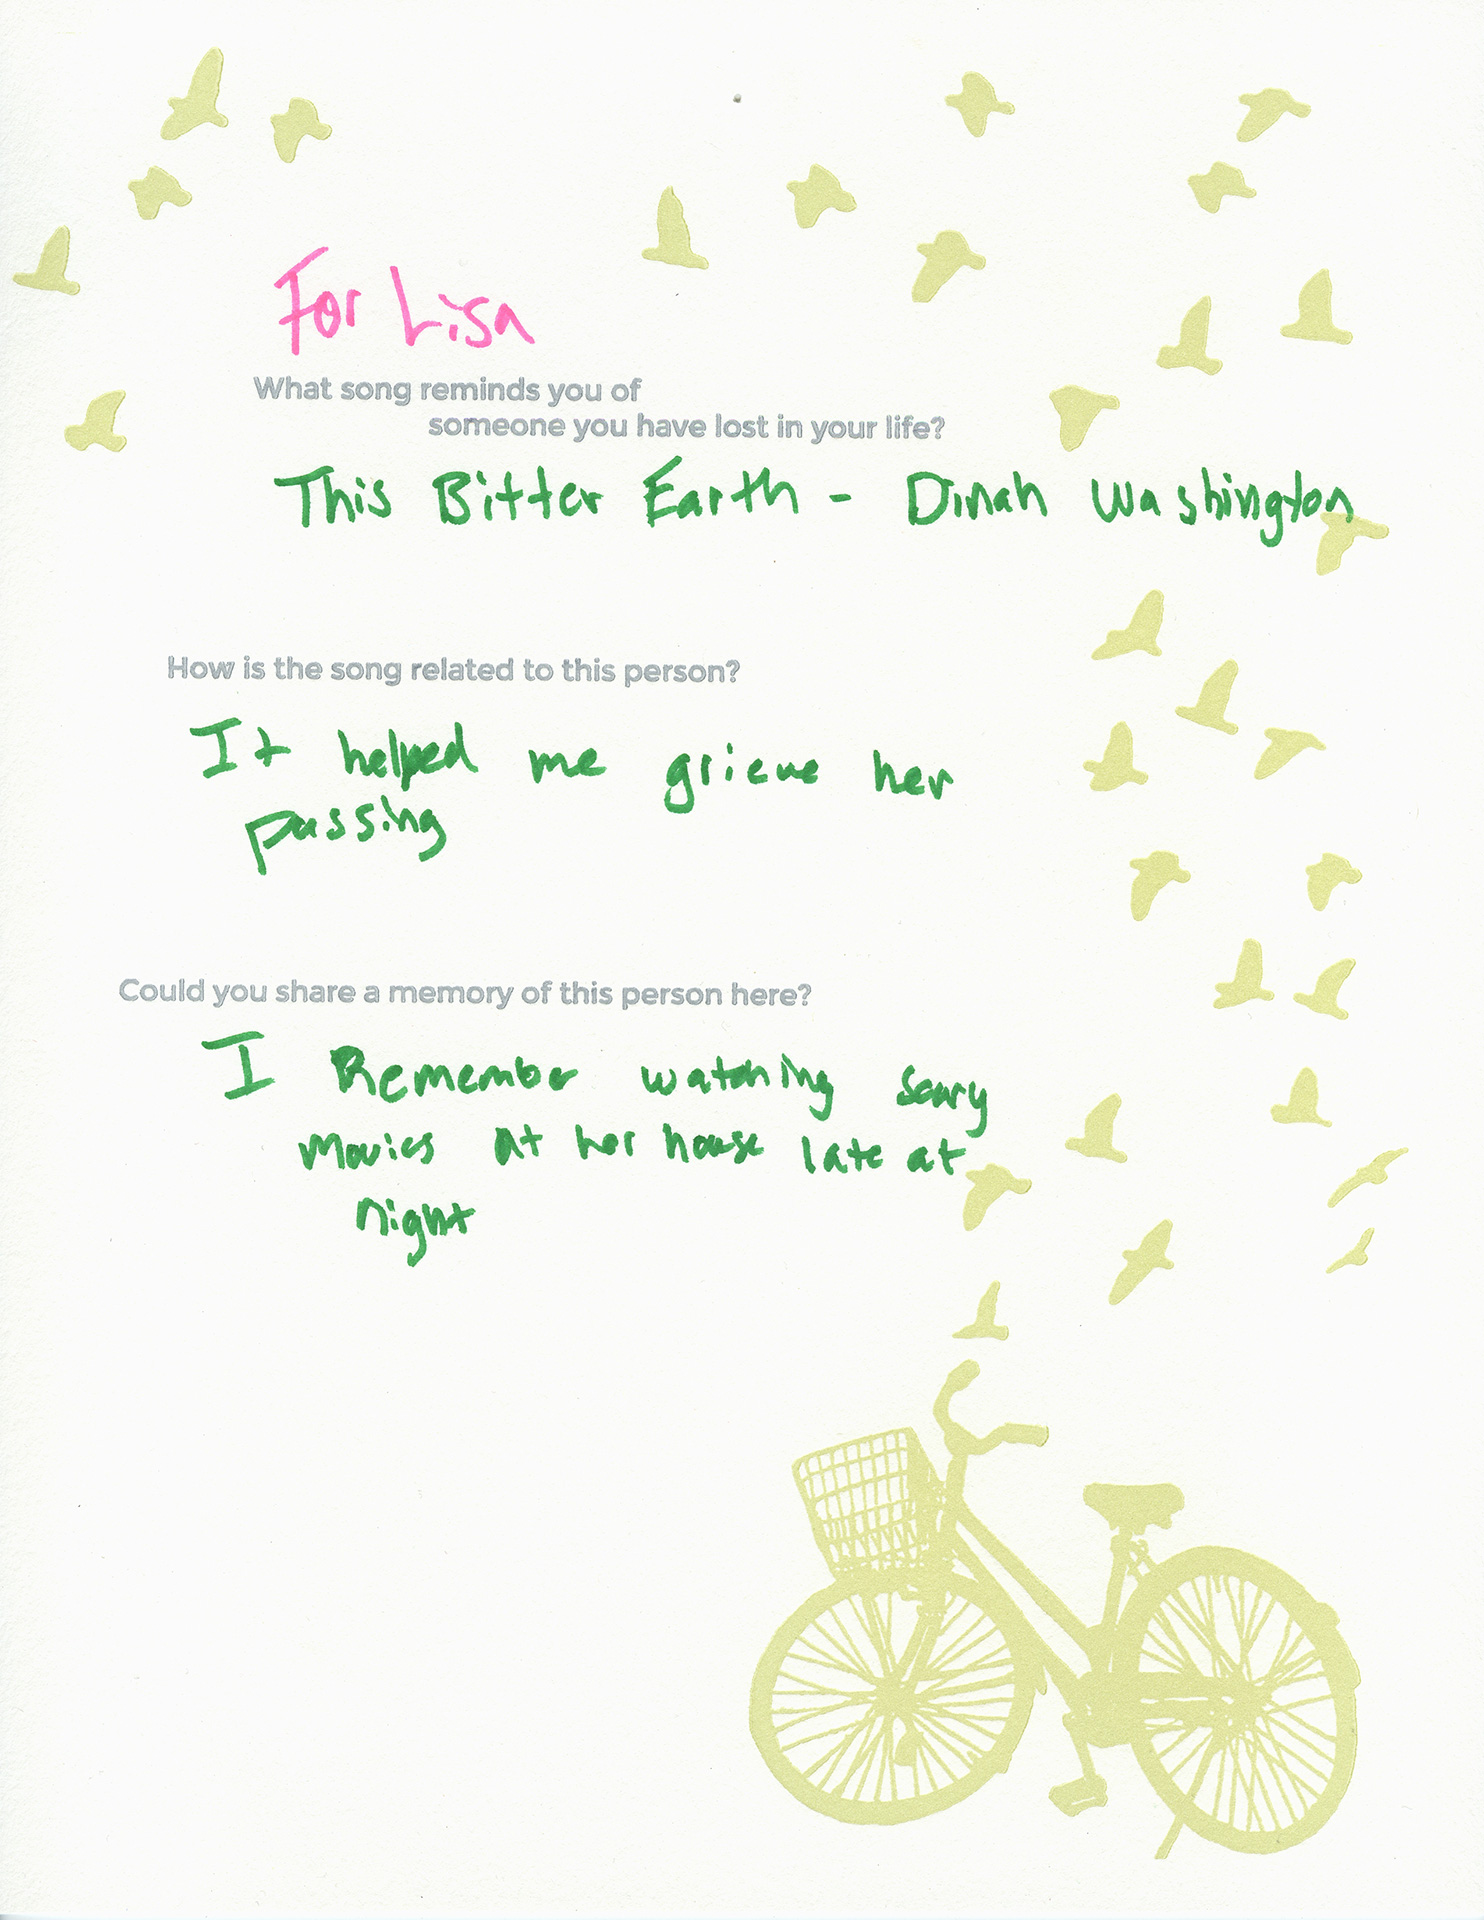 For Lisa
What song reminds you of
someone you have lost in your life?
This Bitter Earth - Dinah Washington
How is the song related to this person?
It helped me grieve her
passing
Could you share a memory of this person here?
I Remember watching scary
Movies at her house late at
night